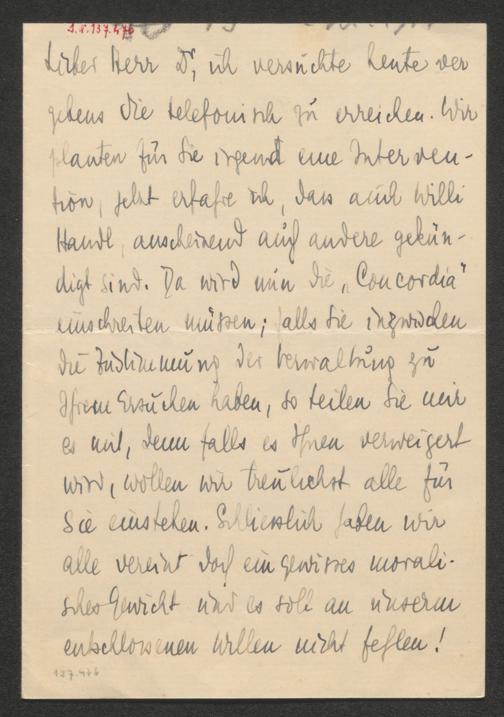 I.N.137.476
Lieber Herr Dr, ich versuchte heute ver
gebens Sie telefonisch zu erreichen. Wir
planten für Sie irgend eine Interven-
tion, jetzt erfahre ich, dass auch Willi
Handl, anscheinend auch andere gekün-
digt sind. Da wird nun die „Concordia"
einschreiten müssen; falls Sie inzwischen
die Zustimmung der Verwaltung zu
Ihrem Ersuchen haben, so teilen Sie mir
es mit, denn falls es Ihnen verweigert
wird, wollen wir treulichst alle für
Sie einstehen. Schliesslich haben wir
alle vereint doch ein gewisses morali-
sches Gewicht und es soll an unserm
entschlossenen Willen nicht fehlen!
137.476